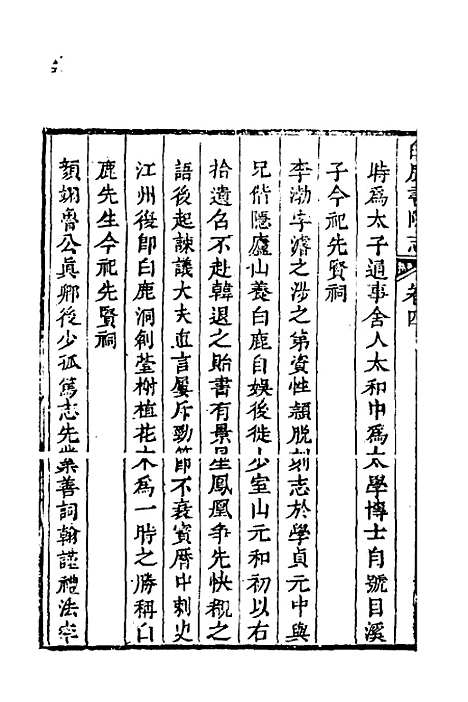 白鹿書院志 卷四
時爲太子通事舍人太和中爲太學博士自號目溪
子今祀先賢祠
李渤字濬之涉之第資性頴脫刻志於學貞元中與
兄偕隱廬山養白鹿自娛後徙少室山元和初以右
拾遺召不赴韓退之貽書有景星鳳凰爭先快覩之
語後起諫議大夫直言屢斥勁節不衰寳厯中刺史
江州後卽白鹿洞創臺榭植花木爲一時之勝稱白
鹿先生今祀先賢祠
顔翊魯公眞卿後少孤篤志先業善詞翰謹禮法率